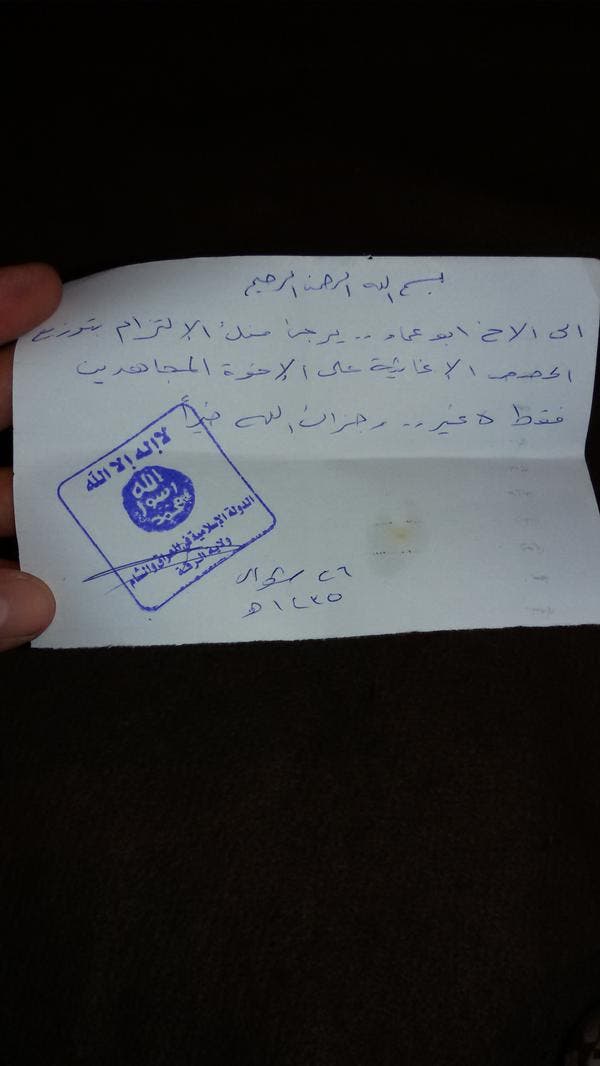 بسم الله الرحمن الرحيم
الى الاخ ابو عماد .. يرجى منك الإلتزام بتوزيع
الحصص الإغاثية على الإخوة المجاهدين
فقط لا غير .. وجزاك الله خيراً
لا إله إلا الله
الله
رسول
محمد
الدولة الإسلامية في العراق والشام
ولاية الرقة
٢٦ شوال
١٤٣٥ هـ